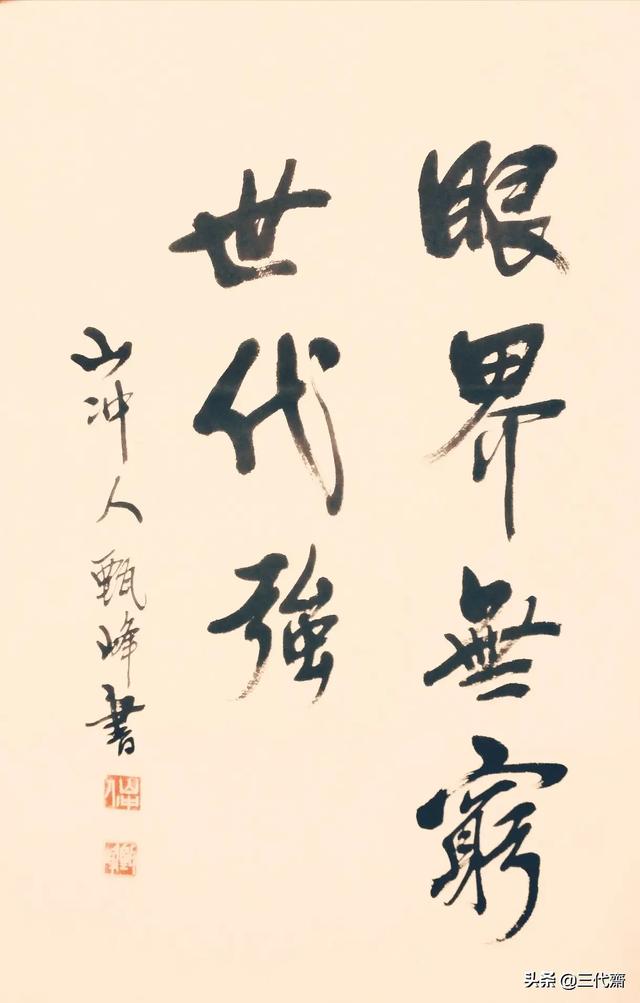 眼界無窮
世代強
山冲人甄峰書
头条 @三代齋